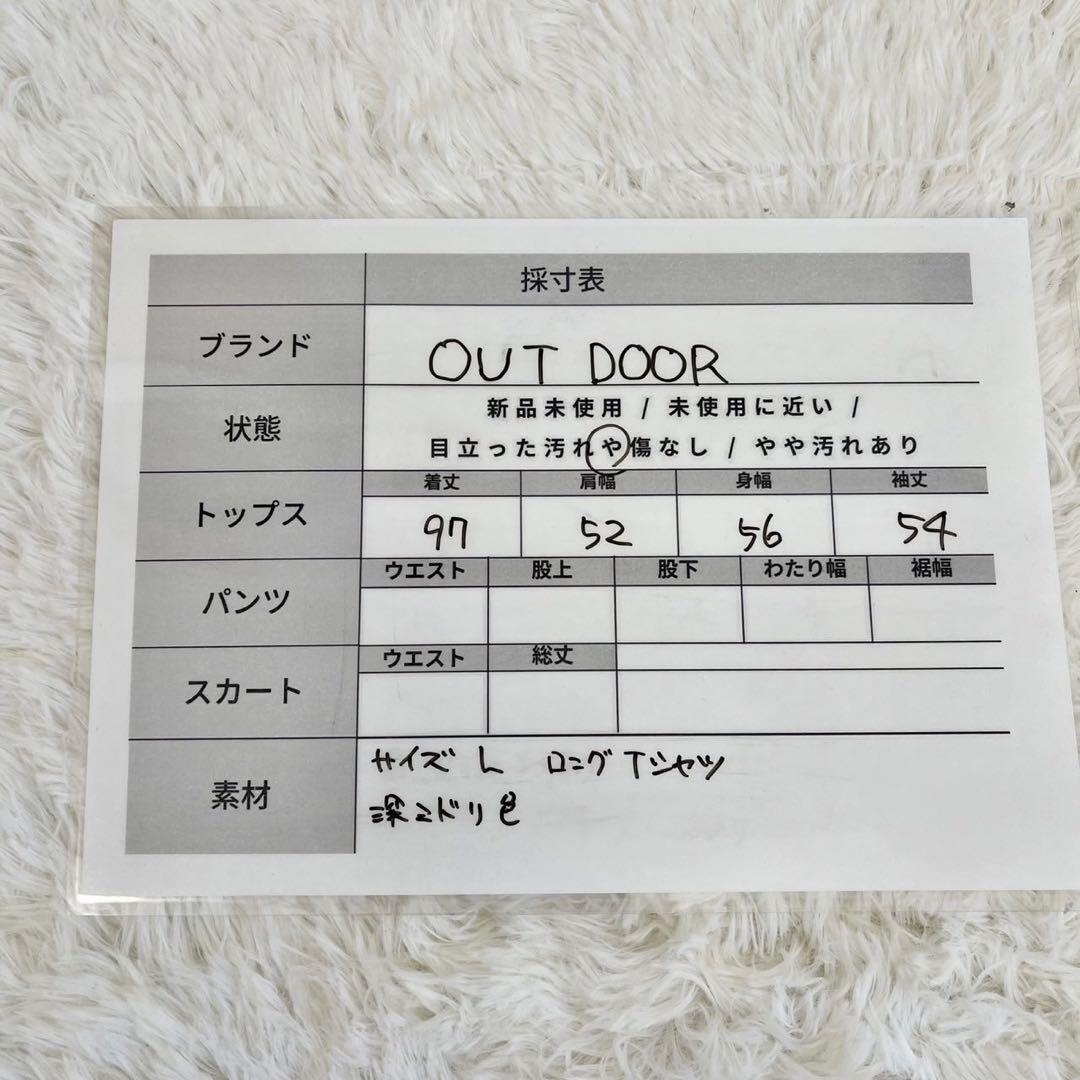 採寸表
ブランド OUT DOOR
状態 新品未使用 / 未使用に近い /
目立った汚れや傷なし / やや汚れあり
トップス 着丈 肩幅 身幅 袖丈
97 52 56 54
パンツ ウエスト 股上 股下 わたり幅 裾幅
スカート ウエスト 総丈
素材 サイズ L ロングTシャツ
深ミドリ色